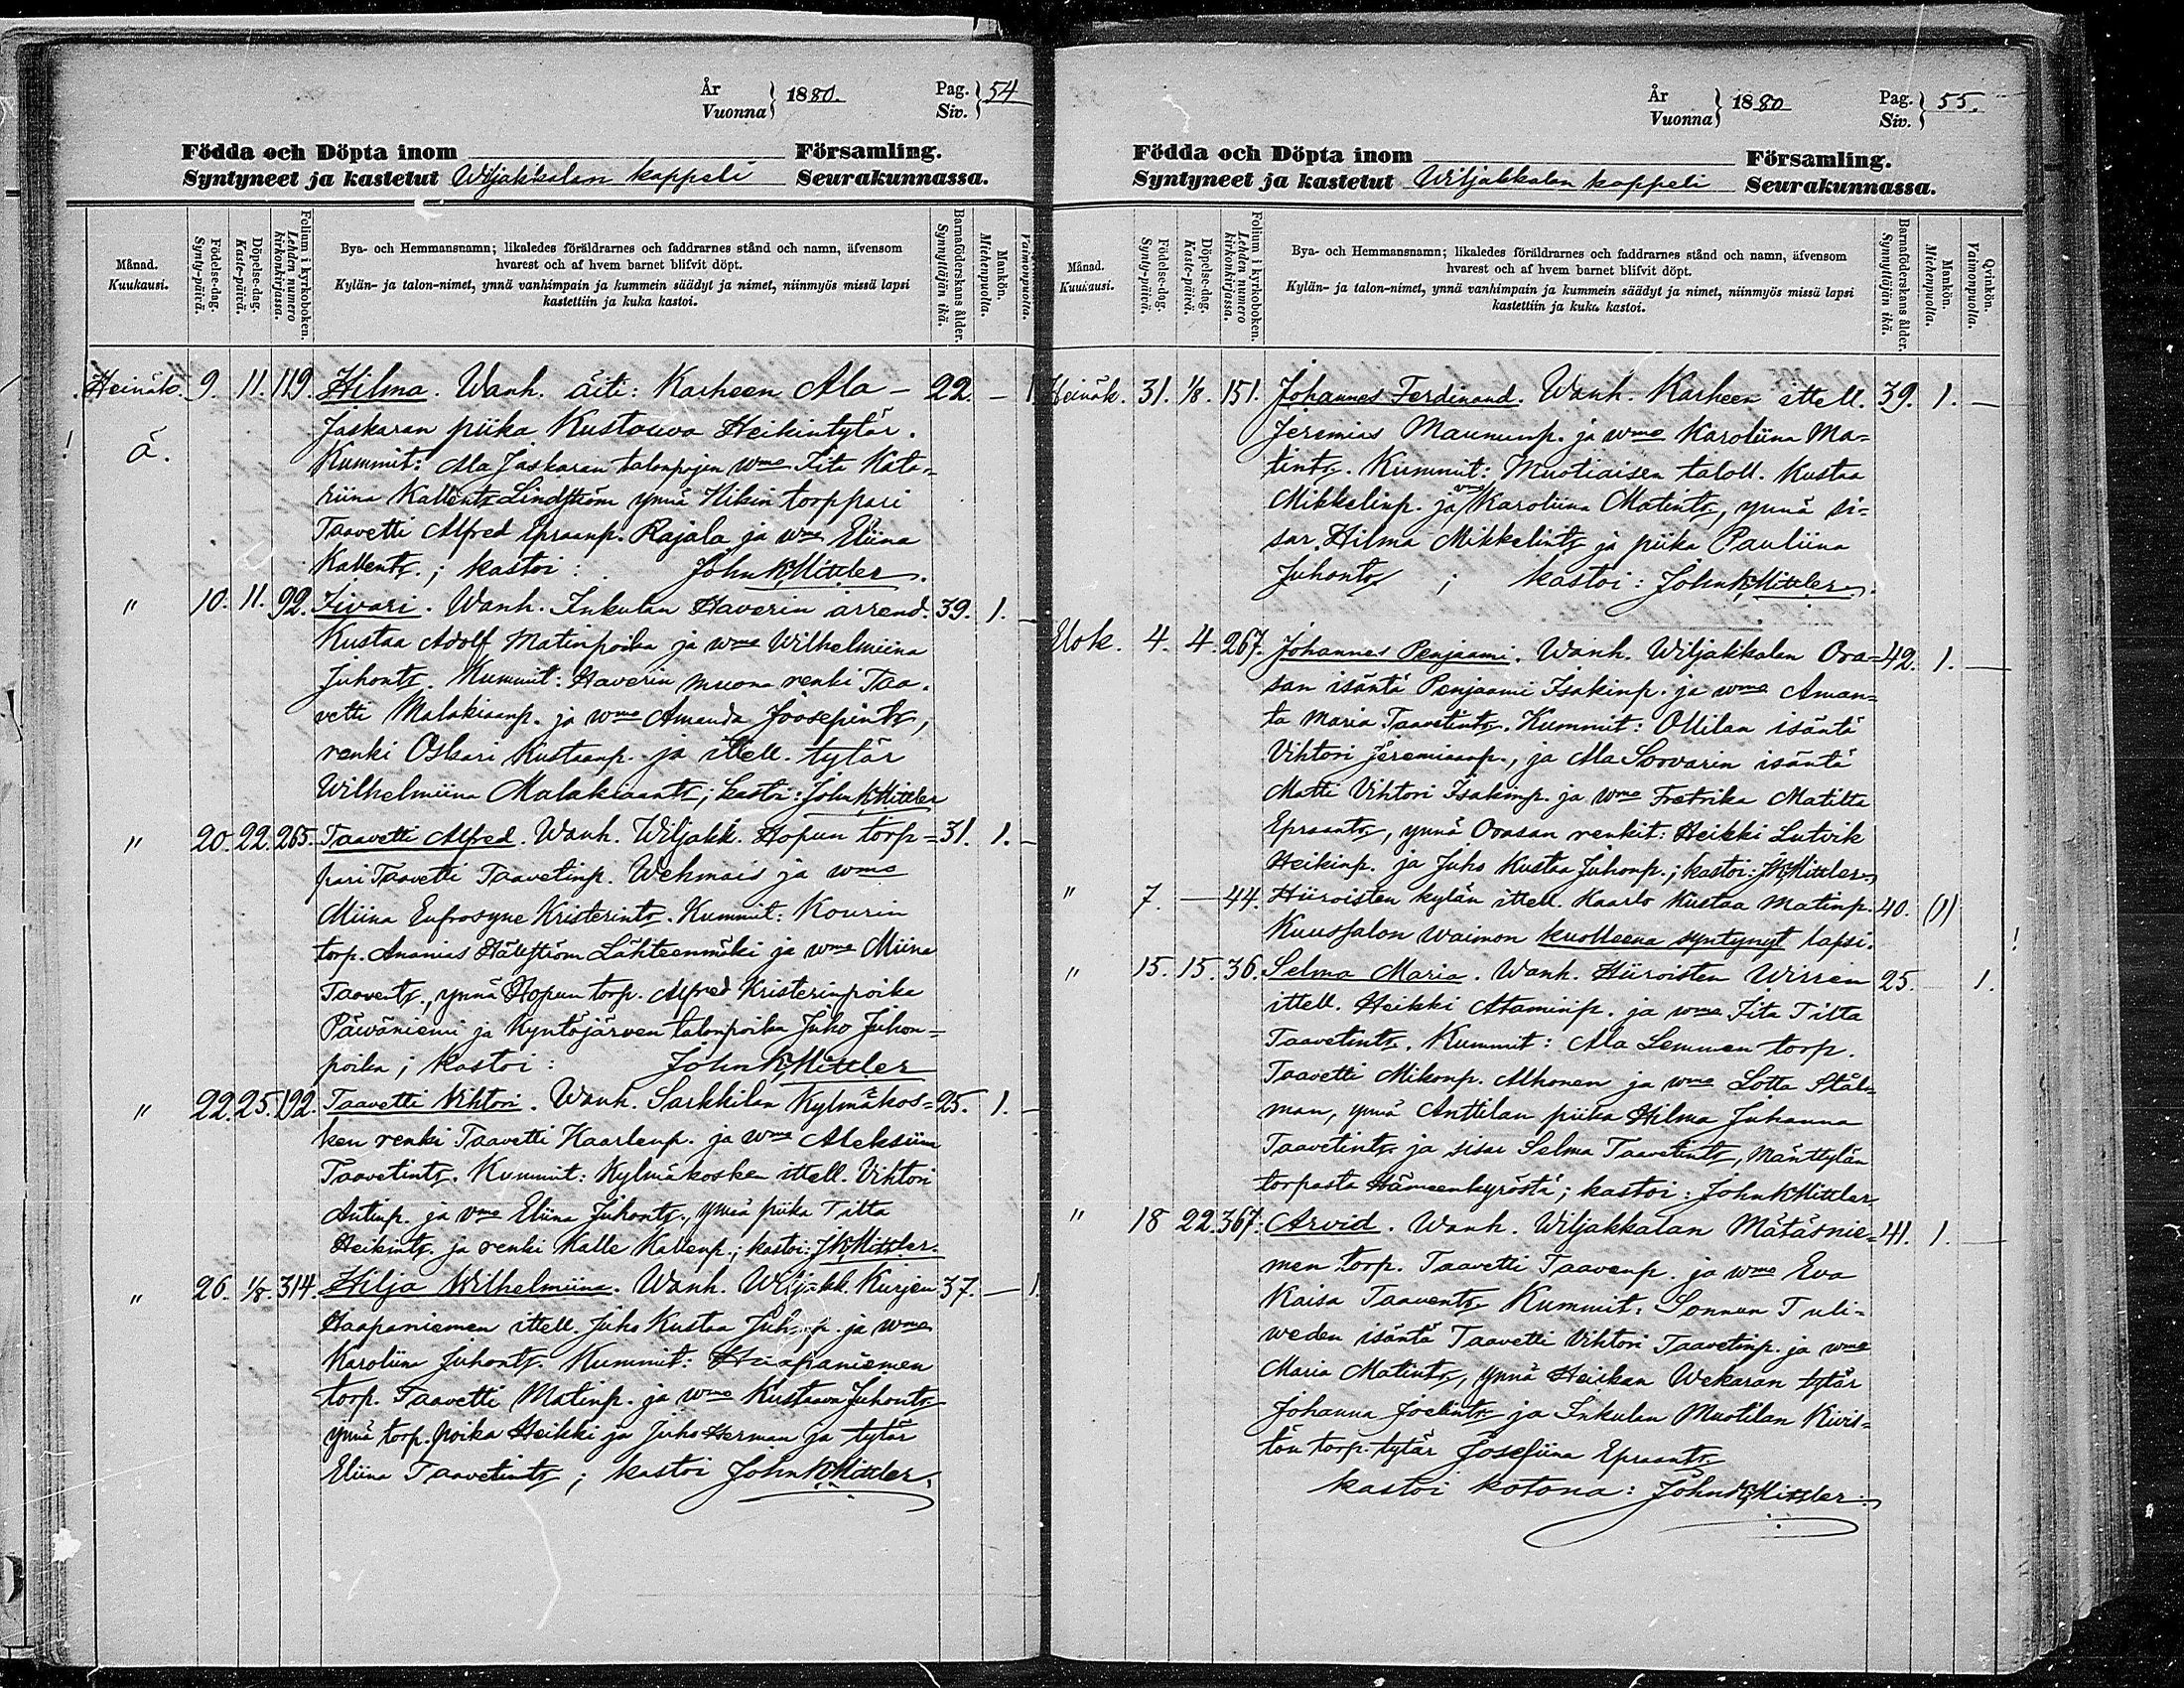 År
Vuonna } 1880. Pag.
Siv. } 54
Födda och Döpta inom Församling.
Syntyneet ja kastetut Wiljakkalan kappeli Seurakunnassa.
Månad.
Kuukausi.
Födelse-dag.
Synty-päivä.
Döpelse-dag.
Kaste-päivä.
Folium i kyrkoboken.
Lehden numero
kirkonkirjassa.
Bya- och Hemmansnamn; likaledes föräldrarnes och faddrarnes stånd och namn, äfvensom
hvarest och af hvem barnet blifvit döpt.
Kylän- ja talon-nimet, ynnä vanhimpain ja kummein säädyt ja nimet, niinmyös missä lapsi
kastettiin ja kuka kastoi.
Barnaföderskans ålder.
Synnyttäjän ikä.
Mankön.
Miehenpuolta.
Vaimonpuolta.
Heinäk. 9. 11. 119. Hilma. Wanh. äiti: Karheen Ala- 22. - 1
! ä. Jaskaran piika Kustaava Heikintytär.
Kummit: Ala Jaskaran talonpojan wmo Fita Kata-
riina Kallents. Lindström ynnä Hikin torppari
Taavetti Alfred Epraanp. Rajala ja wmo Eliina
Kallents.; kastoi: John K, Mittler.
" 10. 11. 92. Iivari. Wanh. Inkulan Haverin arrend. 39. 1. -
Kustaa Adolf Matinpoika ja wmo Wilhelmiina
Juhonts. Kummit: Haverin muona renki Taa-
vetti Malakiaanp. ja wmo Amanda Joosepints,
renki Oskari Kustaanp. ja ittell. tytär
Wilhelmiina Malakiaants; kastoi: John K Mittler
" 20. 22. 265. Taavetti Alfred. Wanh. Wiljakk. Hopun torp= 31. 1. -
pari Taavetti Taavetinp. Wehmais ja wmo
Miina Eufrosyne Kristerints. Kummit: Kourin
torp. Ananias Hällström Lähteenmäki ja wmo Miina
Taavents., ynnä Hopun torp. Alfred Kristerinpoika
Päiväniemi ja Kyntöjärven talonpoika Juho Juhon=
poika; kastoi: John K, Mittler
" 22. 25. 192. Taavetti Vihtori. Wanh. Sarkkilan Kylmäkos= 25. 1. -
ken renki Taavetti Kaarlenp. ja wmo Aleksiina
Taavetints. Kummit: Kylmäkosken ittell. Vihtori
Antinp. ja vmo Eliina Juhonts., ynnä piika Tilta
Heikints. ja renki Kalle Kallenp.; kastoi: J K Mittler.
" 26. 1/8. 314. Hilja Wilhelmiina. Wanh. Wiljakk. Kurjen 37. - 1.
Haapaniemen ittell. Juho Kustaa Juhonp. ja wmo
Karoliina Juhonts. Kummit: Haapaniemen
torp. Taavetti Matinp. ja wmo Kustaava Juhonts.
ynnä torp. poika Heikki ja Juho Herman ja tytär
Eliina Taavetints; kastoi John K Mittler.
År
Vuonna } 1880 Pag.
Siv. } 55.
Födda och Döpta inom Församling.
Syntyneet ja kastetut Wiljakkalan kappeli Seurakunnassa.
Månad.
Kuukausi.
Födelse-dag.
Synty-päivä.
Döpelse-dag.
Kaste-päivä.
Folium i kyrkoboken.
Lehden numero
kirkonkirjassa.
Bya- och Hemmansnamn; likaledes föräldrarnes och faddrarnes stånd och namn, äfvensom
hvarest och af hvem barnet blifvit döpt.
Kylän- ja talon-nimet, ynnä vanhimpain ja kummein säädyt ja nimet, niinmyös missä lapsi
kastettiin ja kuka kastoi.
Barnaföderskans ålder.
Synnyttäjän ikä.
Mankön.
Miehenpuolta.
Qvinkön.
Vaimonpuolta.
Heinäk. 31. 1/8. 151. Johannes Ferdinand. Wanh. Karheen ittell. 39. 1. -
Jeremias Maununp. ja wmo Karoliina Ma=
tints. Kummit: Muotiaisen taloll. Kustaa
Mikkelinp. ja vmo Karoliina Matints, ynnä si=
sar Hilma Mikkelints ja piika Pauliina
Juhonts; kastoi: John K, Mittler.
Elok. 4. 4. 267. Johannes Penjaami. Wanh. Wiljakkalan Ora= 42. 1. -
san isäntä Penjaami Isakinp. ja wmo Aman=
ta Maria Taavetints. Kummit: Ollilan isäntä
Vihtori Jeremiaanp., ja Ala Soovarin isäntä
Matti Vihtori Isakinp. ja wmo Fretrika Matilta
Epraants, ynnä Orasan renkit: Heikki Lutvik
Heikinp. ja Juho Kustaa Juhonp.; kastoi: J K, Mittler.
" 7. - 44. Hiiroisten kylän ittell. Kaarlo Kustaa Matinp. 40. (1)
Kuussalon waimon kuolleena syntynyt lapsi. !
" 15. 15. 36. Selma Maria. Wanh. Hiiroisten Wirren 25. 1.
ittell. Heikki Ataminp. ja wmo Fita Tilta
Taavetints. Kummit: Ala Lemmen torp.
Taavetti Mikonp. Alhonen ja wmo Lotta Stål=
man, ynnä Anttilan piika Hilma Johanna
Taavetints ja sisar Selma Taavetints, Mänttylän
torpasta Hämeenkyröstä; kastoi: John K Mittler
" 18 22. 367. Arvid. Wanh. Wiljakkalan Mätäsnie= 41. 1. -
men torp. Taavetti Taavenp. ja wmo Eva
Kaisa Taavents. Kummit: Sonnun Tuli=
weden isäntä Taavetti Vihtori Taavetinp. ja wmo
Maria Matints, ynnä Heiskan Wekaran tytär
Johanna Joelints ja Inkulan Muotilan Kivis=
tön torp. tytär Josefiina Epraants
kastoi kotona: John K, Mittler.